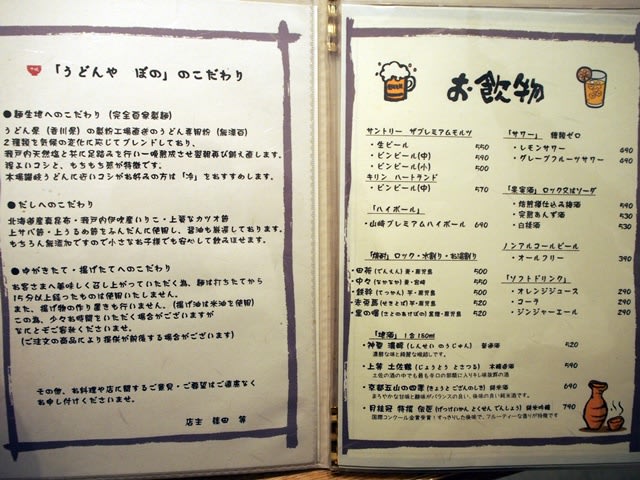 「うどんや ぼの」のこだわり
●麺生地へのこだわり (完全自家製麺)
うどん県(香川県)の製粉工場直送のうどん専用粉(無漂白)
2種類を気候の変化に応じてブレンドしており、
瀬戸内天然塩と共に足踏みを行い一晩熟成させ翌朝再び鍛え直します。
程よいコシと、もちもち感が特徴です。
本場讃岐うどんに近いコシがお好みの方は「冷」をおすすめします。
●だしへのこだわり
北海道産真昆布・瀬戸内伊吹産いりこ・上等なカツオ節
上サバ節・上うるめ節をふんだんに使用し、醤油も厳選しております。
もちろん無添加ですので小さなお子様でも安心して飲み干せます。
●ゆがきたて・揚げたてへのこだわり
お客さまへ美味しく召し上がっていただく為、麺は打ちたてから
15分以上経ったものは使用いたしません。
また、揚げ物の作り置きも行いません。(揚げ油は米油を使用)
この為、少々お時間をいただく場合がございますが
なにとぞご容赦くださいませ。
(ご注文の商品により提供が前後する場合がございます)
その他、お料理や店に関するご意見・ご要望はご遠慮なく
お申し付けくださいませ。
店主 篠田 篤
お飲物
サントリー ザプレミアムモルツ
・生ビール 550
・ビンビール(中) 590
・ビンビール(小) 500
キリン ハートランド
・ビンビール(中) 570
「ハイボール」
・山崎プレミアムハイボール 690
「焼酎」ロック・水割り・お湯割り
・田苑(でんえん)麦・鹿児島 500
・中々(なかなか)麦・宮崎 550
・鉄幹(てっかん)芋・鹿児島 500
・赤兎馬(せきとば)芋・鹿児島 520
・里の曙(さとのあけぼの)黒糖・鹿児島 520
「地酒」1合150ml
・神聖 濃醇(しんせい のうじゅん) 普通酒 520
濃醇な味と綺麗な喉越しです。
・上等 土佐鶴(じょうとう とさつる) 本醸造酒 590
土佐の酒の中でも最も辛口の部類に入りキレ味抜群の酒
・京都五山の四季(きょうと ござんのしき) 純米酒 690
まろやかな甘味と酸味がバランスの良い、後味の良い純米酒です。
・月桂冠 特撰 伝匠(げっけいかん とくせん でんしょう) 純米吟醸 790
国際コンクール金賞受賞!すっきりした後味で、フルーティーな香りが特徴です
「サワー」 糖類ゼロ
・レモンサワー 490
・グレープフルーツサワー 490
「果実酒」ロック又はソーダ
・焙煎樽仕込み梅酒 590
・完熟あんず酒 530
・白桃酒 530
ノンアルコールビール
・オールフリー 390
「ソフトドリンク」
・オレンジジュース 290
・コーラ 290
・ジンジャーエール 290